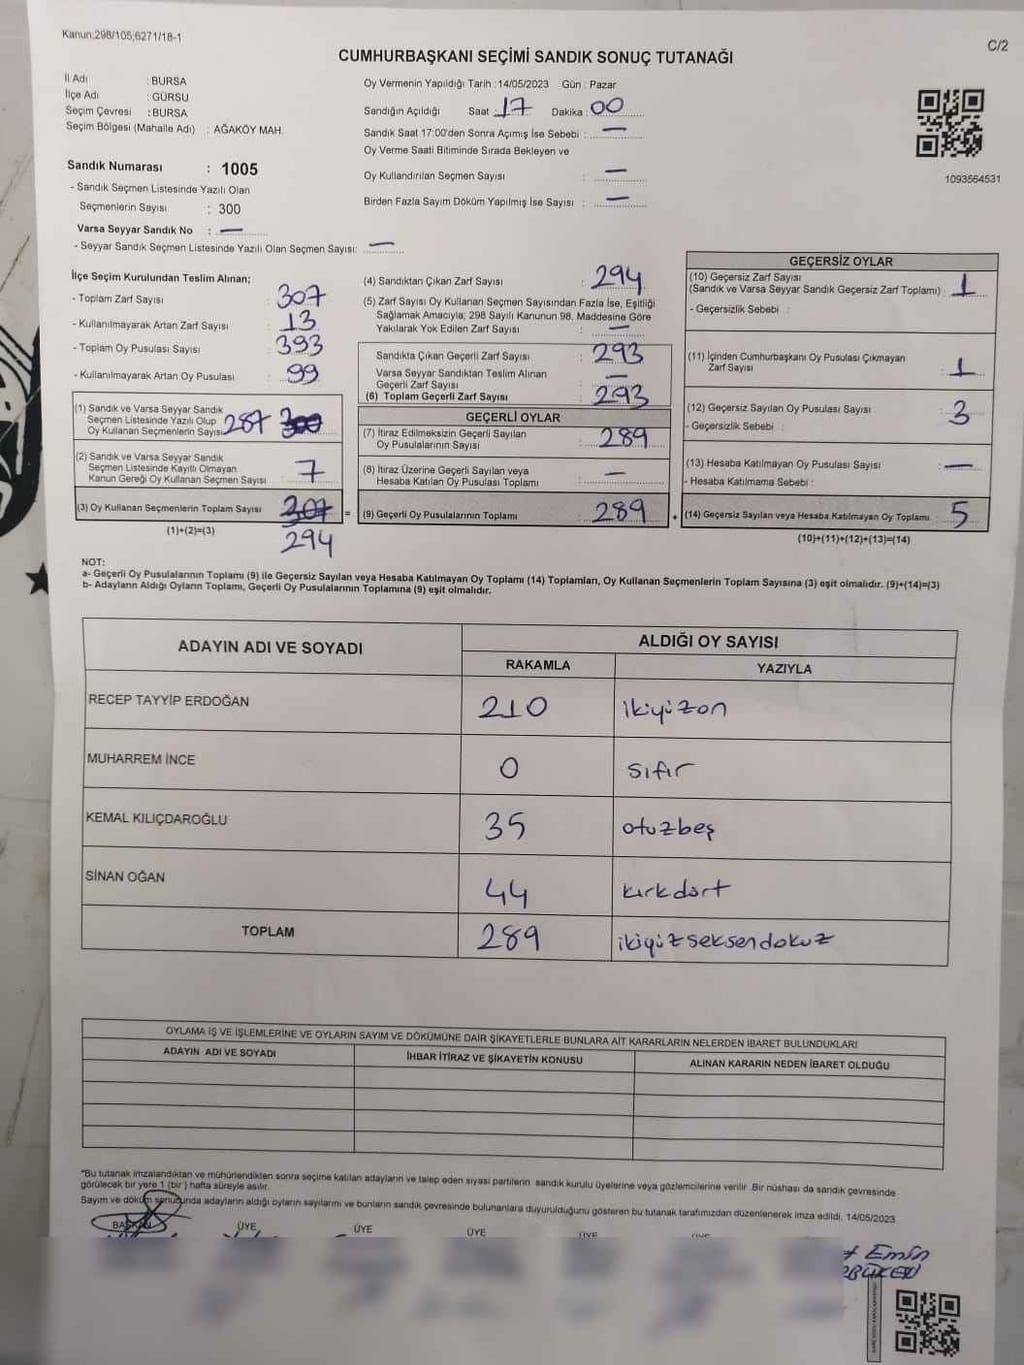 Kanun:298/105,6271/18-1
C/2
CUMHURBAŞKANI SEÇİMİ SANDIK SONUÇ TUTANAĞI
İl Adı : BURSA
İlçe Adı : GÜRSU
Seçim Çevresi : BURSA
Seçim Bölgesi (Mahalle Adı) : AĞAKÖY MAH.
Oy Vermenin Yapıldığı Tarih : 14/05/2023 Gün : Pazar
Sandığın Açıldığı Saat : 17 Dakika : 00
Sandık Saat 17:00'den Sonra Açımış İse Sebebi : —
Oy Verme Saati Bitiminde Sırada Bekleyen ve
Oy Kullandırılan Seçmen Sayısı : —
Birden Fazla Sayım Döküm Yapılmış İse Sayısı : —
1093564531
Sandık Numarası : 1005
- Sandık Seçmen Listesinde Yazılı Olan
Seçmenlerin Sayısı : 300
Varsa Seyyar Sandık No : —
- Seyyar Sandık Seçmen Listesinde Yazılı Olan Seçmen Sayısı: —
İlçe Seçim Kurulundan Teslim Alınan;
- Toplam Zarf Sayısı : 307
- Kullanılmayarak Artan Zarf Sayısı : 13
- Toplam Oy Pusulası Sayısı : 393
- Kullanılmayarak Artan Oy Pusulası : 99
(1) Sandık ve Varsa Seyyar Sandık
Seçmen Listesinde Yazılı Olup
Oy Kullanan Seçmenlerin Sayısı 287 300
(2) Sandık ve Varsa Seyyar Sandık
Seçmen Listesinde Kayıtlı Olmayan
Kanun Gereği Oy Kullanan Seçmen Sayısı : 7
(3) Oy Kullanan Seçmenlerin Toplam Sayısı 307
(1)+(2)=(3)
294
(4) Sandıktan Çıkan Zarf Sayısı : 294
(5) Zarf Sayısı Oy Kullanan Seçmen Sayısından Fazla İse, Eşitliği
Sağlamak Amacıyla; 298 Sayılı Kanunun 98. Maddesine Göre
Yakılarak Yok Edilen Zarf Sayısı : —
Sandıkta Çıkan Geçerli Zarf Sayısı : 293
Varsa Seyyar Sandıktan Teslim Alınan
Geçerli Zarf Sayısı : —
(6) Toplam Geçerli Zarf Sayısı : 293
GEÇERLİ OYLAR
(7) İtiraz Edilmeksizin Geçerli Sayılan
Oy Pusulalarının Sayısı : 289
(8) İtiraz Üzerine Geçerli Sayılan veya
Hesaba Katılan Oy Pusulası Toplamı : —
= (9) Geçerli Oy Pusulalarının Toplamı : 289
GEÇERSİZ OYLAR
(10) Geçersiz Zarf Sayısı
(Sandık ve Varsa Seyyar Sandık Geçersiz Zarf Toplamı) : 1
- Geçersizlik Sebebi :
(11) İçinden Cumhurbaşkanı Oy Pusulası Çıkmayan
Zarf Sayısı : 1
(12) Geçersiz Sayılan Oy Pusulası Sayısı : 3
- Geçersizlik Sebebi :
(13) Hesaba Katılmayan Oy Pusulası Sayısı : —
- Hesaba Katılmama Sebebi :
+ (14) Geçersiz Sayılan veya Hesaba Katılmayan Oy Toplamı : 5
(10)+(11)+(12)+(13)=(14)
NOT:
a- Geçerli Oy Pusulalarının Toplamı (9) ile Geçersiz Sayılan veya Hesaba Katılmayan Oy Toplamı (14) Toplamları, Oy Kullanan Seçmenlerin Toplam Sayısına (3) eşit olmalıdır. (9)+(14)=(3)
b- Adayların Aldığı Oyların Toplamı, Geçerli Oy Pusulalarının Toplamına (9) eşit olmalıdır.
ADAYIN ADI VE SOYADI
ALDIĞI OY SAYISI
RAKAMLA YAZIYLA
RECEP TAYYİP ERDOĞAN 210 ikiyüzon
MUHARREM İNCE 0 sıfır
KEMAL KILIÇDAROĞLU 35 otuzbeş
SİNAN OĞAN 44 kırkdört
TOPLAM 289 ikiyüzseksendokuz
OYLAMA İŞ VE İŞLEMLERİNE VE OYLARIN SAYIM VE DÖKÜMÜNE DAİR ŞİKAYETLERLE BUNLARA AİT KARARLARIN NELERDEN İBARET BULUNDUKLARI
ADAYIN ADI VE SOYADI İHBAR İTİRAZ VE ŞİKAYETİN KONUSU ALINAN KARARIN NEDEN İBARET OLDUĞU
*Bu tutanak imzalandıktan ve mühürlendikten sonra seçime katılan adayların ve talep eden siyasi partilerin sandık kurulu üyelerine veya gözlemcilerine verilir .Bir nüshası da sandık çevresinde
görülecek bir yere 1 (bir) hafta süreyle asılır.
Sayım ve döküm sonucunda adayların aldığı oyların sayılarını ve bunların sandık çevresinde bulunanlara duyurulduğunu gösteren bu tutanak tarafımızdan düzenlenerek imza edildi. 14/05/2023
BAŞKAN ÜYE ÜYE ÜYE ÜYE
Emin